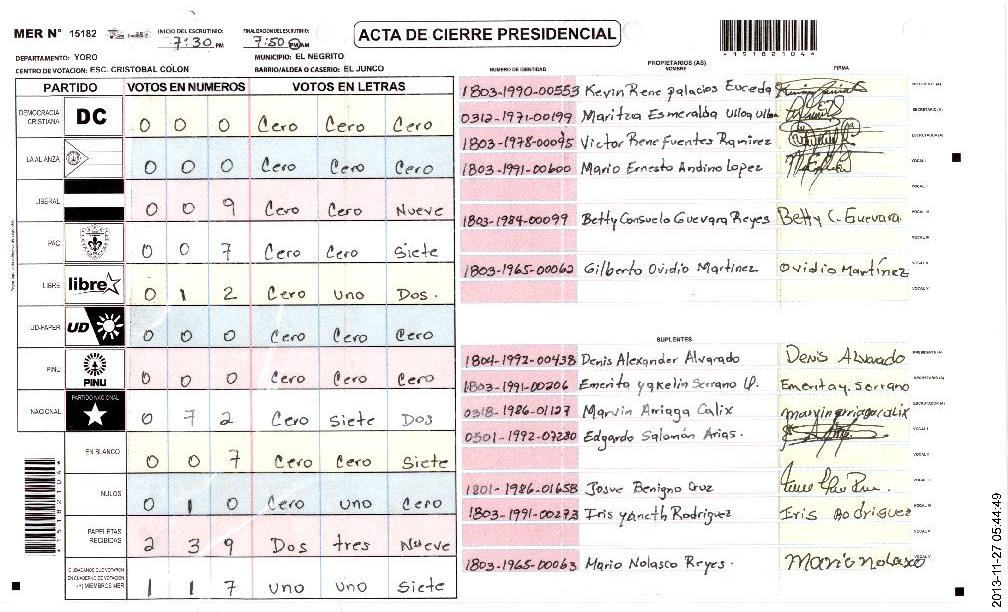 MER N° 15182
INICIO DEL ESCRUTINIO:
7:30 PM
FINALIZACION DEL ESCRUTINIO:
7:50 PM AM
ACTA DE CIERRE PRESIDENCIAL
*15182104*
DEPARTAMENTO: YORO
MUNICIPIO: EL NEGRITO
CENTRO DE VOTACION: ESC. CRISTOBAL COLON
BARRIO/ALDEA O CASERIO: EL JUNCO
PARTIDO VOTOS EN NUMEROS VOTOS EN LETRAS
DEMOCRACIA CRISTIANA DC 0 0 0 Cero Cero Cero
LA ALIANZA 0 0 0 Cero Cero Cero
LIBERAL 0 0 9 Cero Cero Nueve
PAC 0 0 7 Cero Cero Siete
LIBRE libre 0 1 2 Cero uno Dos.
UD-FAPER UD 0 0 0 Cero Cero Cero
PINU PINU 0 0 0 Cero Cero Cero
NACIONAL PARTIDO NACIONAL 0 7 2 Cero siete Dos
EN BLANCO 0 0 7 Cero Cero Siete
NULOS 0 1 0 Cero uno Cero
PAPELETAS RECIBIDAS 2 3 9 Dos tres Nueve
CIUDADANOS QUE VOTARON EN CUADERNO DE VOTACION (+) MIEMBROS MER 1 1 7 uno uno Siete
*15182104*
PROPIETARIOS (AS)
NUMERO DE IDENTIDAD NOMBRE FIRMA
1803-1990-00553 Kevin Rene palacios Euceda PRESIDENTE (A)
0312-1971-00199 Maritza Esmeralda Ulloa Ulloa SECRETARIO (A)
1803-1978-00095 Victor Rene Fuentes Ramirez ESCRUTADOR (A)
1803-1991-00600 Mario Ernesto Andino Lopez VOCAL I
VOCAL II
1803-1984-00099 Betty Consuelo Guevara Reyes Betty C. Guevara. VOCAL III
VOCAL IV
1803-1965-00062 Gilberto Ovidio Martinez Ovidio Martínez VOCAL V
VOCAL VI
SUPLENTES
1804-1992-00438 Denis Alexander Alvarado Denis Alvarado PRESIDENTE (A)
1803-1991-00206 Emerita yakelin Serrano LP. Emerita y. Serrano SECRETARIO (A)
0318-1986-01127 Marvin Arriaga Calix marvin arriaga calix ESCRUTADOR (A)
0501-1992-07230 Edgardo Salomón Arias. VOCAL I
VOCAL II
1801-1986-01658 Josue Benigno Cruz VOCAL III
1803-1991-00273 Iris yaneth Rodriguez Iris Rodriguez VOCAL IV
VOCAL V
1803-1965-00063 Mario Nolasco Reyes. Mario Nolasco VOCAL VI
2013-11-27 05:44:49